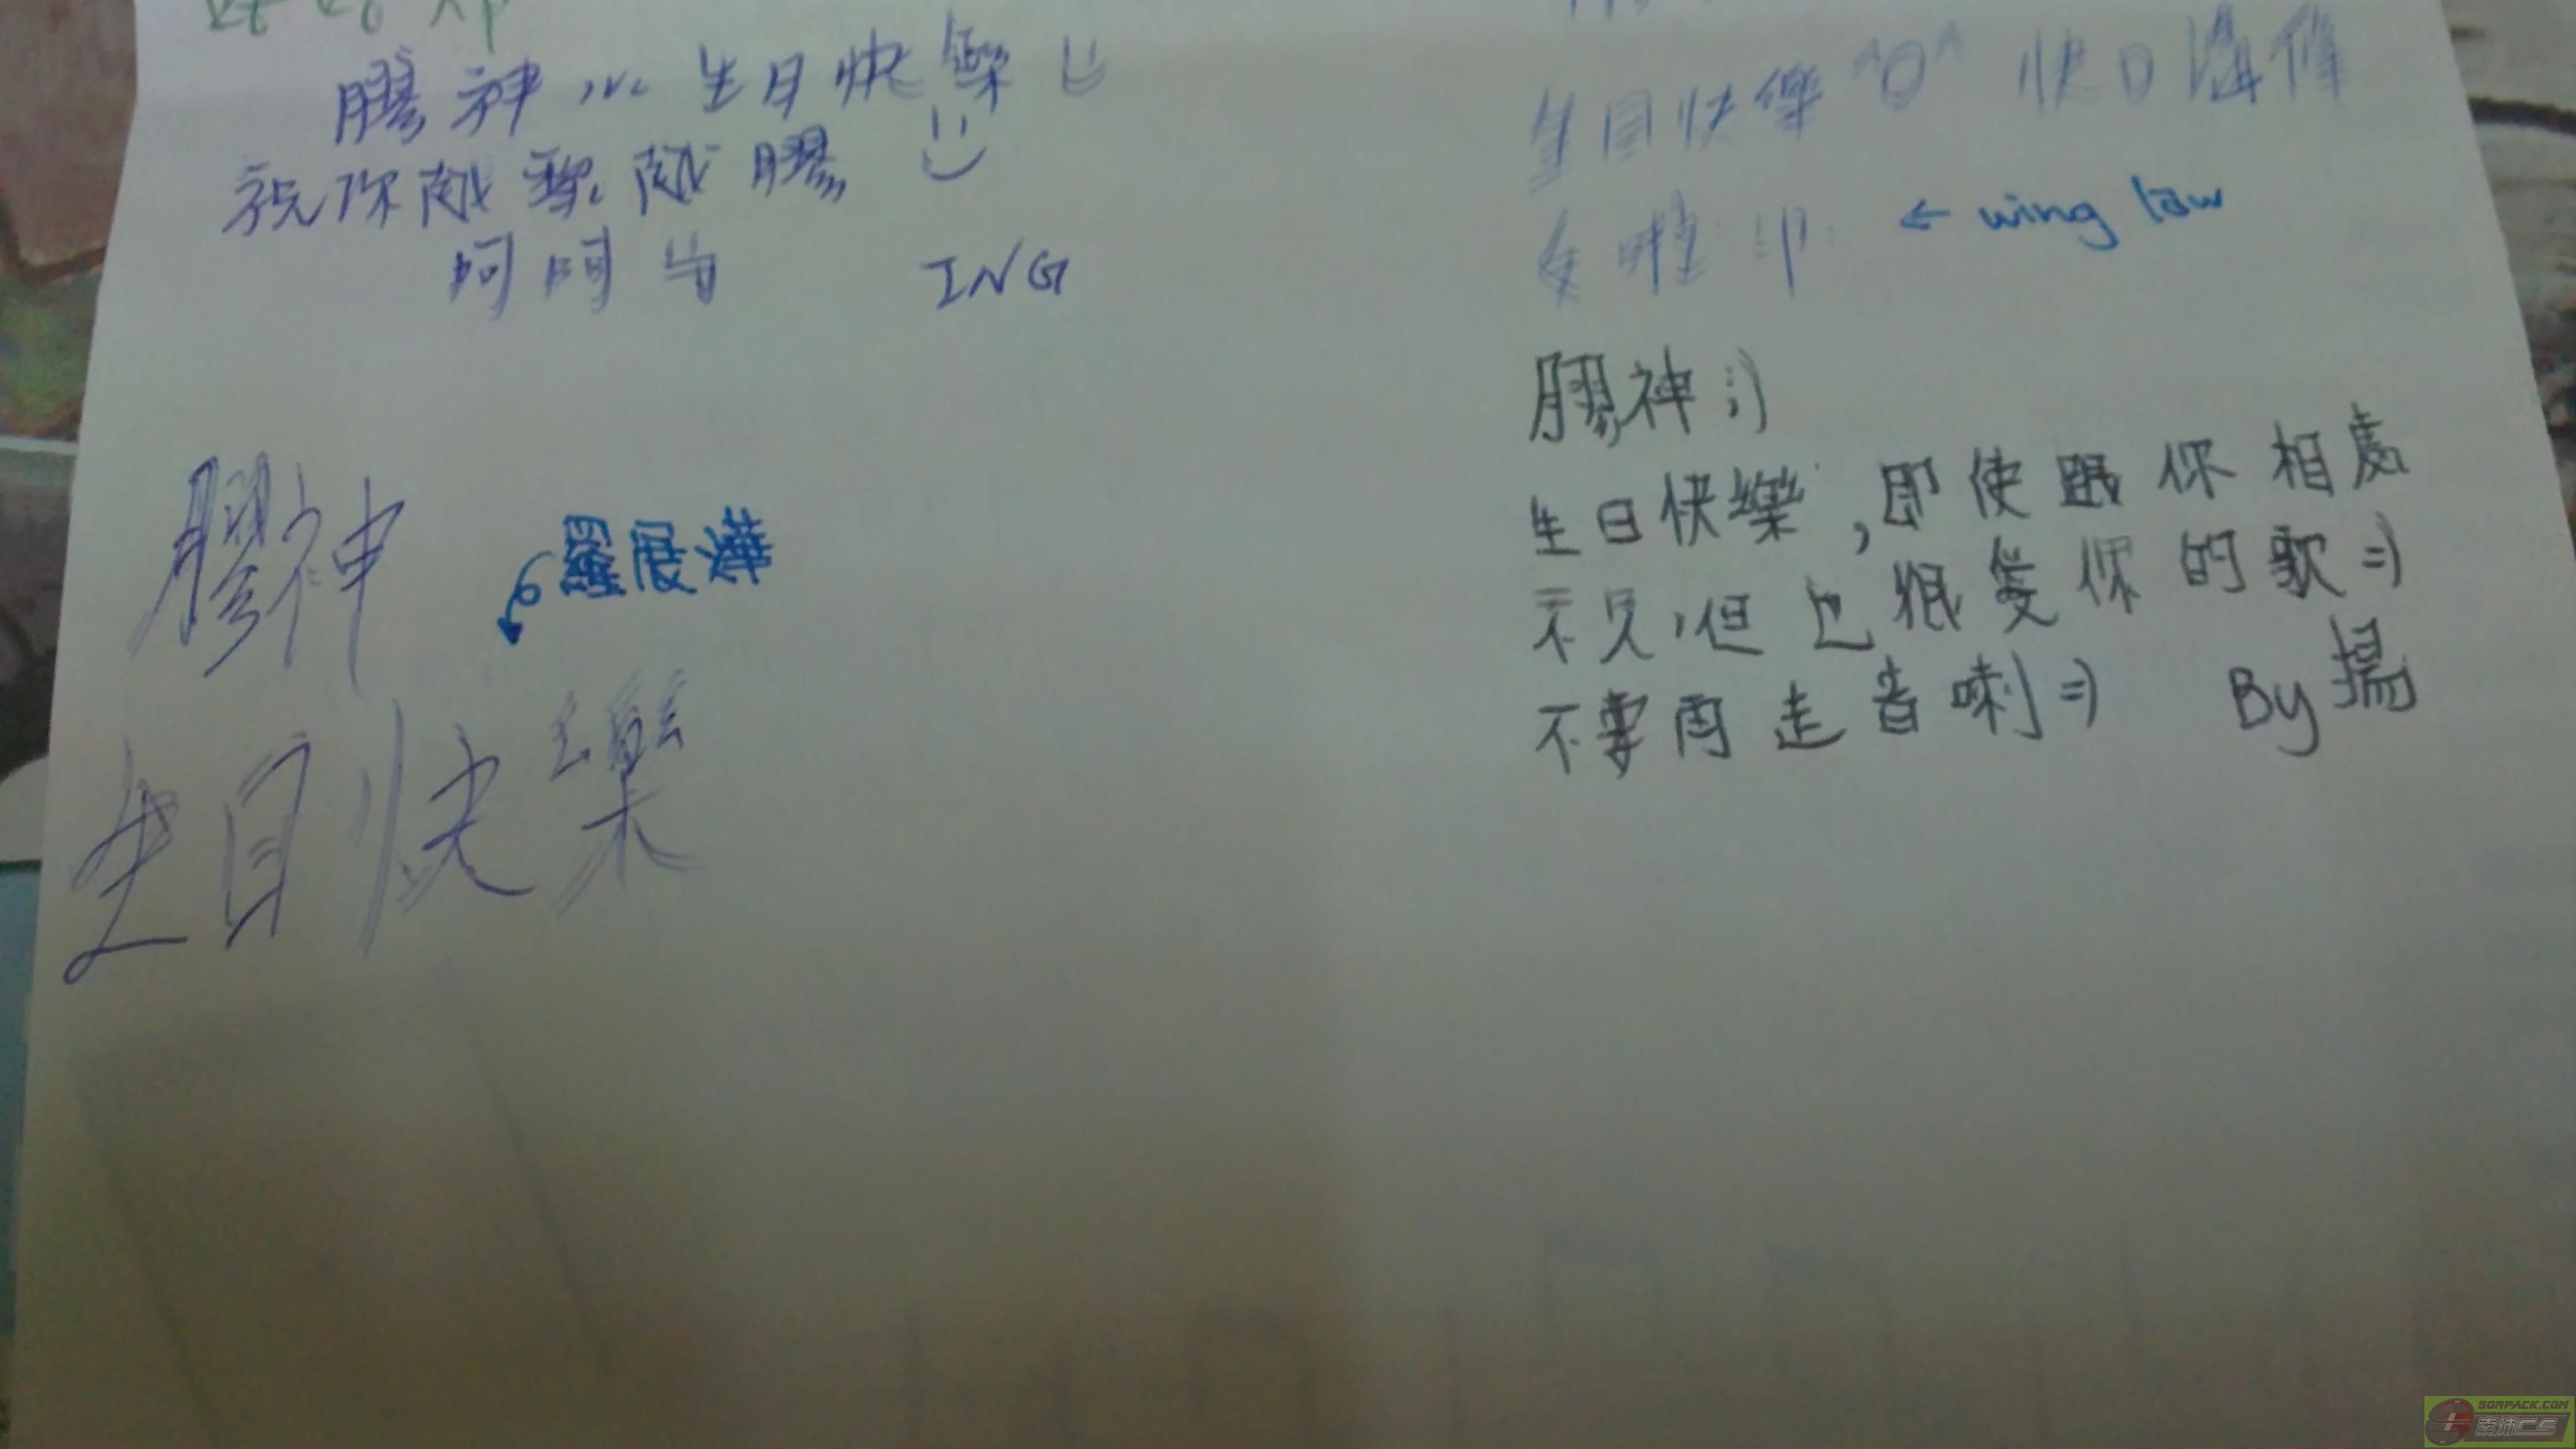 膠神 生日快樂
祝你越黎越膠
呵呵 ING
膠神
羅展
生日快樂
生日快樂 ^O^ 快D
← wing law
膠神 ;)
生日快樂,即使跟你相處
不久,但也很愛你的歌=)
不要再走音喇=) By 揚
SORPACK.COM